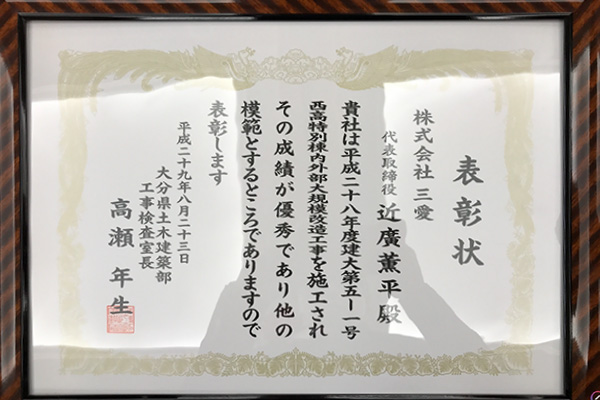 表彰状
株式会社 三愛
代表取締役 近廣薫平殿
貴社は平成二十八年度建大第五ー一号
西高特別棟内外部大規模改造工事を施工され
その成績が優秀であり他の
模範とするところでありますので
表彰します
平成二十九年八月二十三日
大分県土木建築部
工事検査室長
高瀬年生